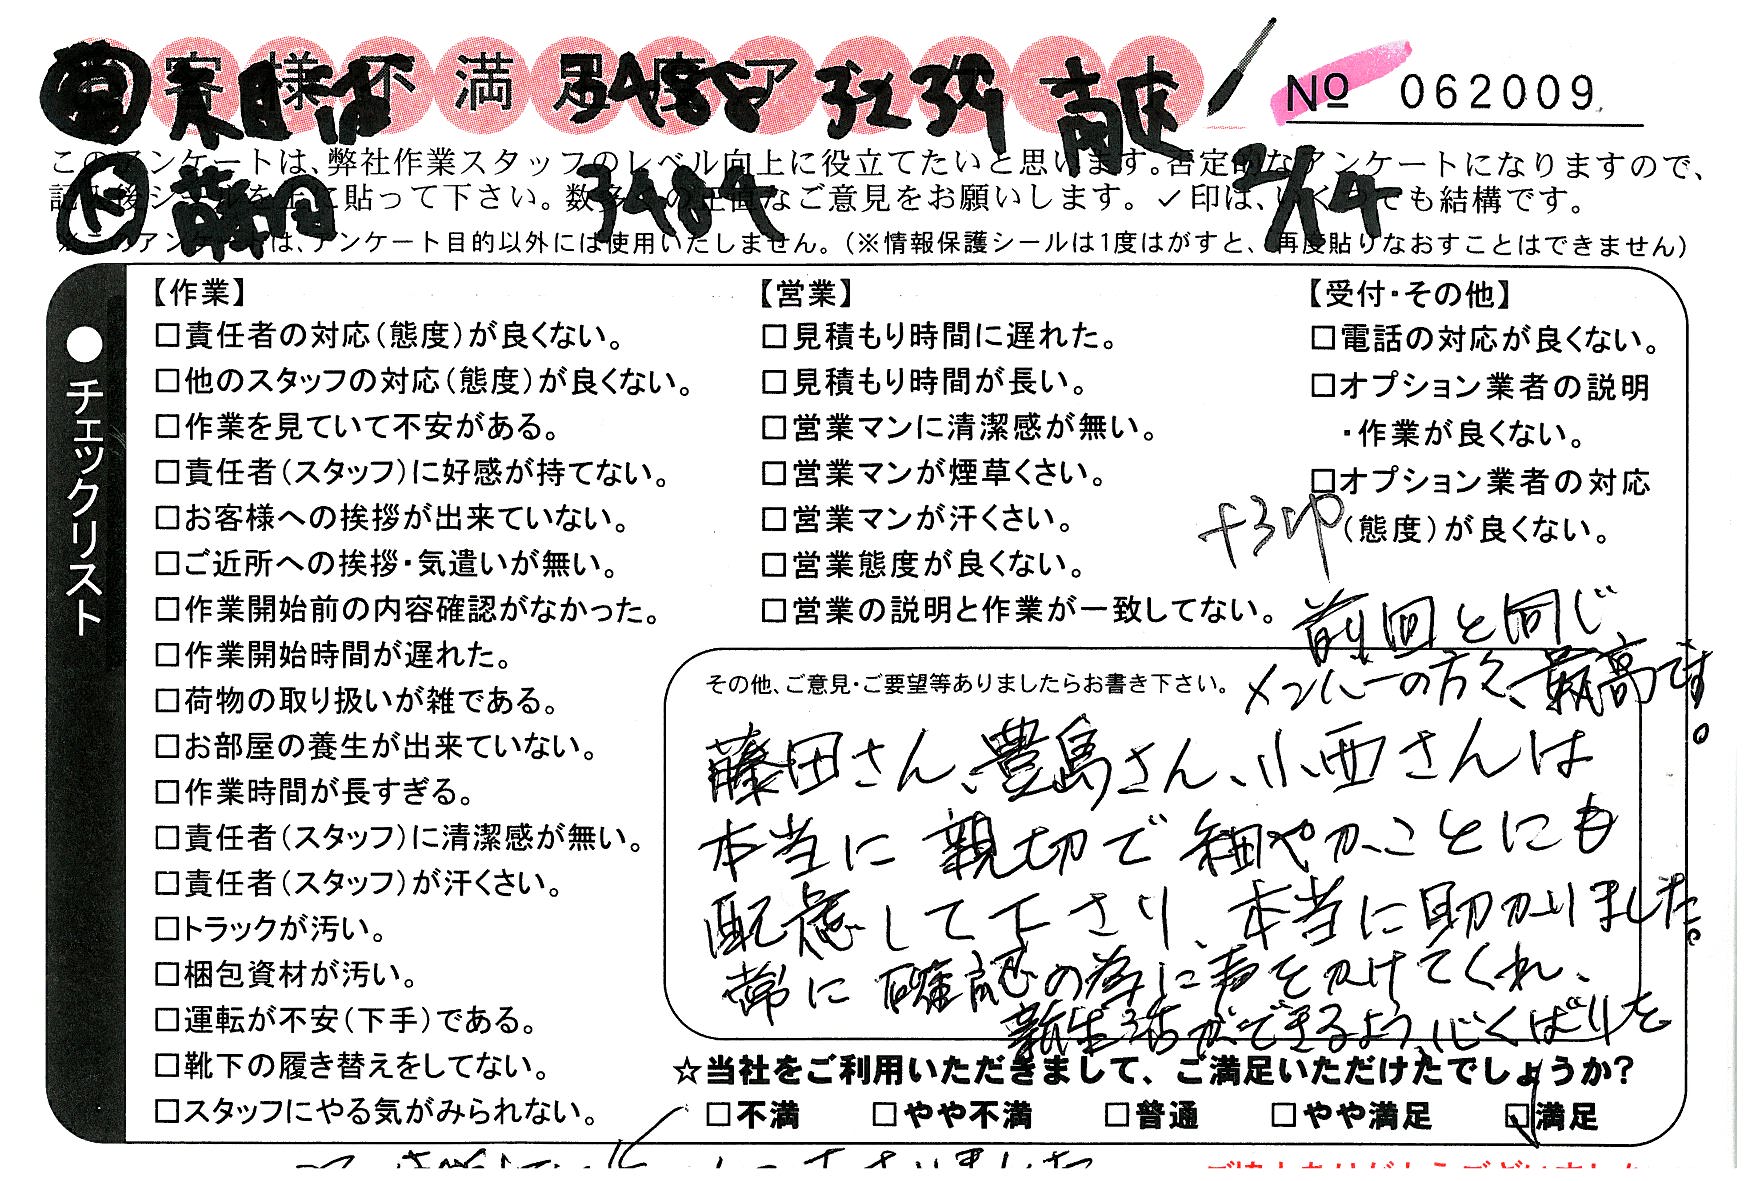 お客様不満足度アンケート
No 062009
3488 高速
このアンケートは、弊社作業スタッフのレベル向上に役立てたいと思います。否定的なアンケートになりますので、
ト 藤田 2/14
記入後シールを上に貼って下さい。数多くの正直なご意見をお願いします。✓印は、いくつでも結構です。
※このアンケートは、アンケート目的以外には使用いたしません。(※情報保護シールは1度はがすと、再度貼りなおすことはできません)
●チェックリスト
【作業】
□責任者の対応(態度)が良くない。
□他のスタッフの対応(態度)が良くない。
□作業を見ていて不安がある。
□責任者(スタッフ)に好感が持てない。
□お客様への挨拶が出来ていない。
□ご近所への挨拶・気遣いが無い。
□作業開始前の内容確認がなかった。
□作業開始時間が遅れた。
□荷物の取り扱いが雑である。
□お部屋の養生が出来ていない。
□作業時間が長すぎる。
□責任者(スタッフ)に清潔感が無い。
□責任者(スタッフ)が汗くさい。
□トラックが汚い。
□梱包資材が汚い。
□運転が不安(下手)である。
□靴下の履き替えをしてない。
□スタッフにやる気がみられない。
【営業】
□見積もり時間に遅れた。
□見積もり時間が長い。
□営業マンに清潔感が無い。
□営業マンが煙草くさい。
□営業マンが汗くさい。
□営業態度が良くない。
□営業の説明と作業が一致してない。
【受付・その他】
□電話の対応が良くない。
□オプション業者の説明
・作業が良くない。
□オプション業者の対応
(態度)が良くない。
+3up
前回と同じ
メンバーの方々、最高です。
その他、ご意見・ご要望等ありましたらお書き下さい。
藤田さん、豊島さん、小西さんは
本当に親切で細やかことにも
配慮して下さり、本当に助かりました。
常に確認の為に声をかけてくれ、
新生活ができるよう、心くばりを
☆当社をご利用いただきまして、ご満足いただけたでしょうか?
□不満 □やや不満 □普通 □やや満足 ☑満足